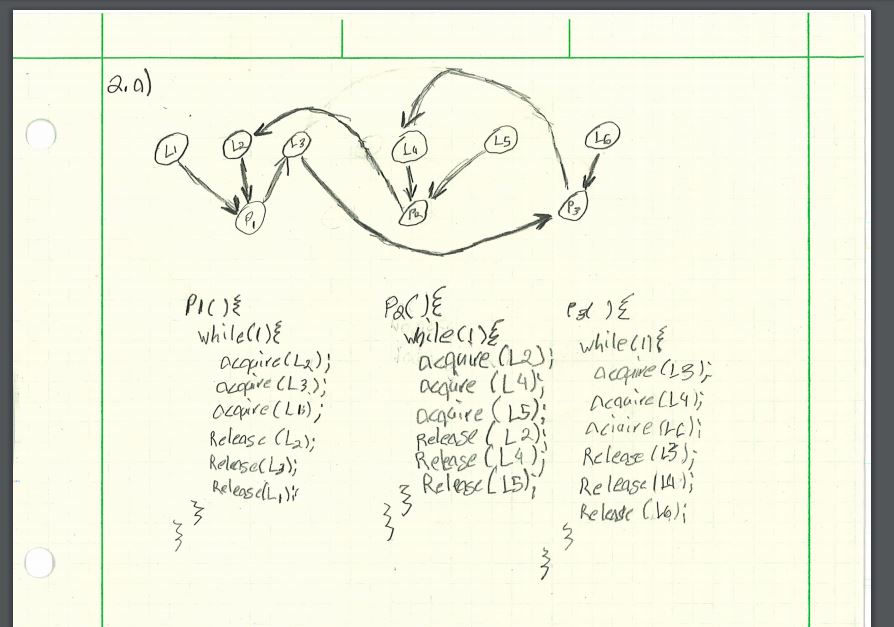 2.a)
L1 L2 L3 L4 L5 L6
P1 P2 P3
P1(){
while(1){
acquire(L2);
acquire(L3);
acquire(L1);
Release(L2);
Release(L3);
Release(L1);
}
}
P2(){
while(1){
acquire(L2);
acquire(L4);
acquire(L5);
Release(L2);
Release(L4);
Release(L5);
}
}
P3(){
while(1){
acquire(L3);
acquire(L4);
aciuire(L6);
Release(L3);
Release(L4);
Release(L6);
}
}